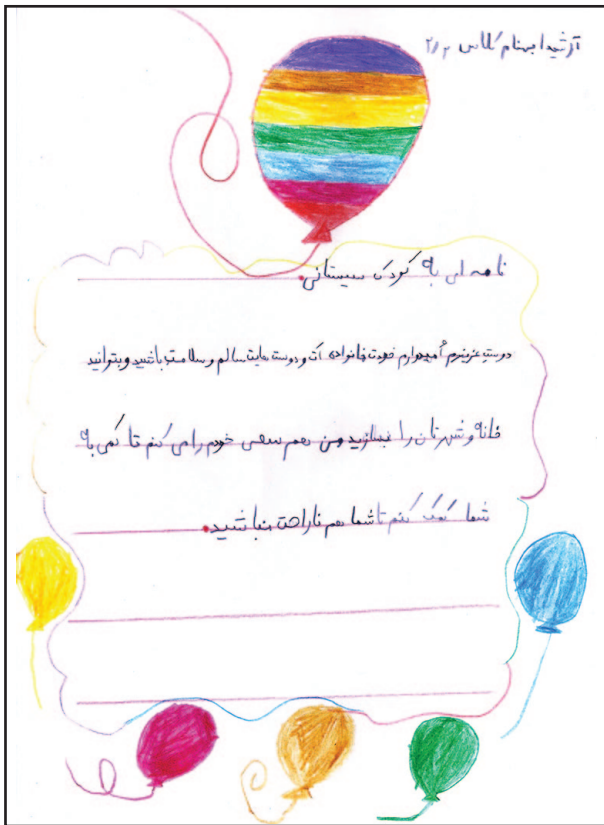 آرشیدا بهنام کلاس ۲/۳
نامه ای به کودک سیستانی.
دوست عزیزم اُمیدوارم خودت خانواده ات و دوست هایت سالم و سلامت باشید و بتوانید
خانه و شهرتان را بسازید و من هم سعی خودم را می کنم تا کمی به
شما کمک کنم تا شما هم ناراحت نباشید.